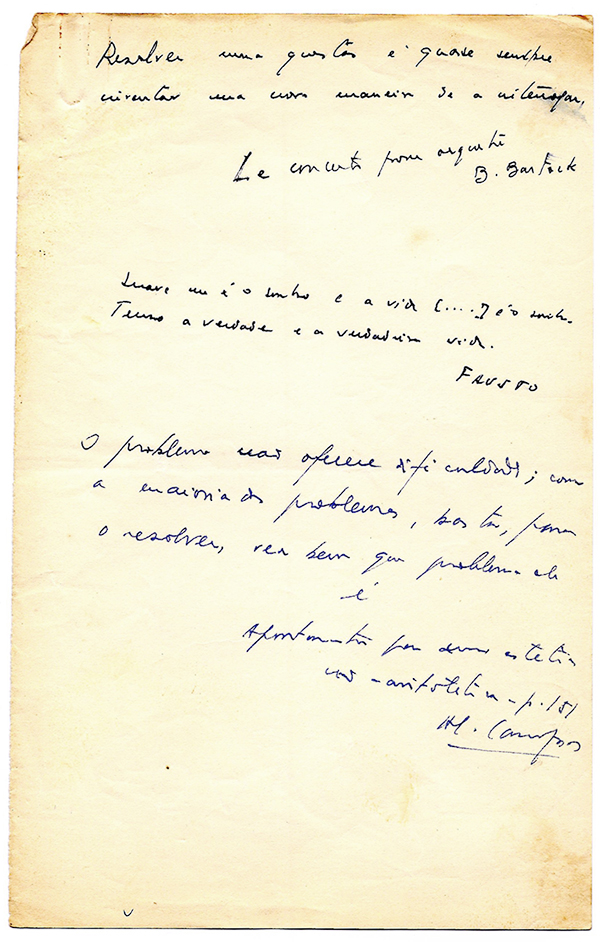 Resolver uma questão é quase sempre
inventar uma nova maneira de a
Le concerto pour orquestre
B. Bartock
é o sonho e a vida [....] é o sonho.
a verdade e a verdadeira vida.
FAUSTO
O problema não oferece dificuldade; como
a maioria dos problemas, basta, para
o resolver, ver bem que problema ele
é
Apontamentos para uma estética
não-aristotélica - p. 151
Al. Campos